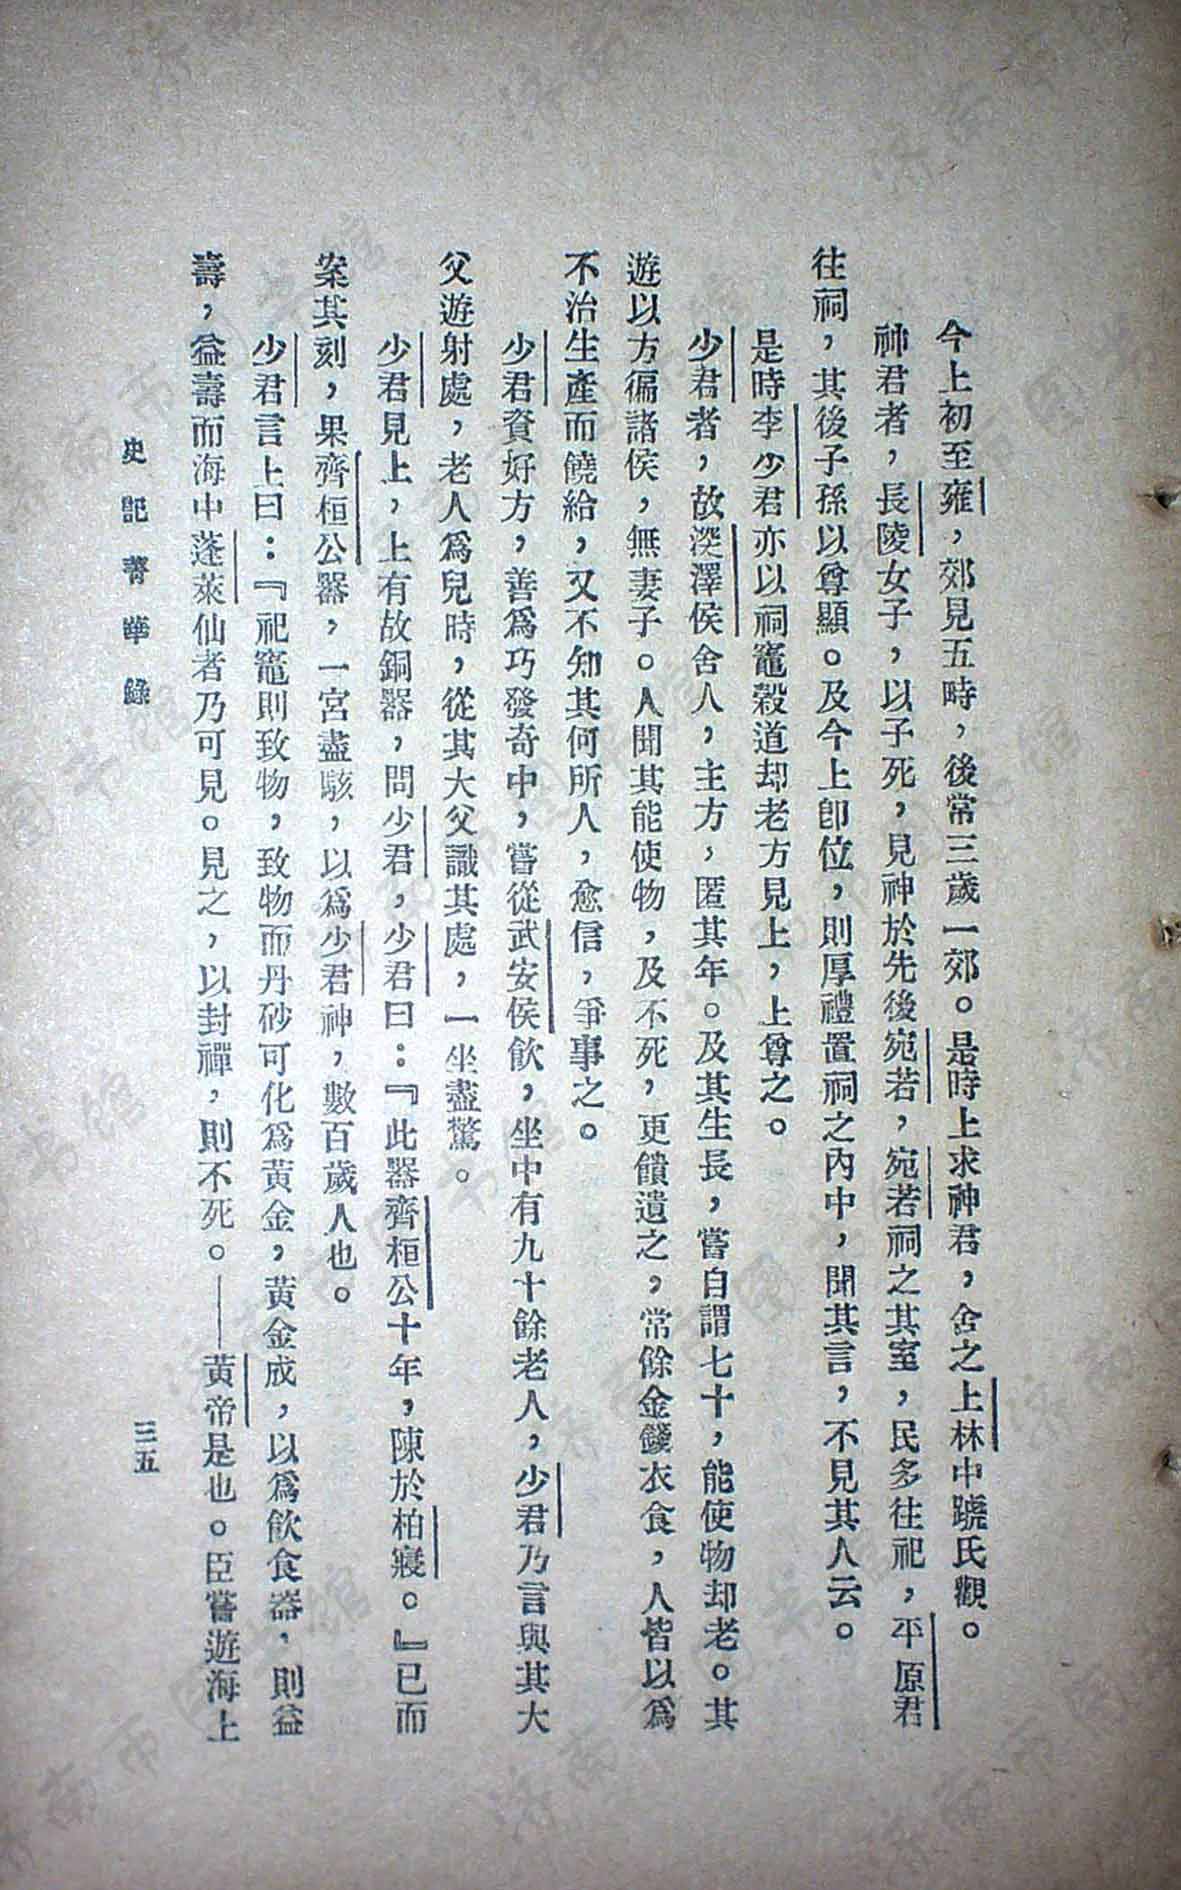 今上初至雍，郊見五畤，後常三歲一郊。是時上求神君，舍之上林中蹏氏觀。
神君者，長陵女子，以子死，見神於先後宛若，宛若祠之其室，民多往祀，平原君
往祠，其後子孫以尊顯。及今上卽位，則厚禮置祠之內中，聞其言，不見其人云。
是時李少君亦以祠竈穀道却老方見上，上尊之。
少君者，故深澤侯舍人，主方，匿其年。及其生長，嘗自謂七十，能使物却老。其
遊以方徧諸侯，無妻子。人聞其能使物，及不死，更饋遺之，常餘金錢衣食，人皆以爲
不治生產而饒給，又不知其何所人，愈信，爭事之。
少君資好方，善爲巧發奇中，嘗從武安侯飲，坐中有九十餘老人，少君乃言與其大
父遊射處，老人爲兒時，從其大父識其處，一坐盡驚。
少君見上，上有故銅器，問少君，少君曰：『此器齊桓公十年，陳於柏寢。』已而
案其刻，果齊桓公器，一宮盡駭，以爲少君神，數百歲人也。
少君言上曰：『祀竈則致物，致物而丹砂可化爲黃金，黃金成，以爲飲食器，則益
壽，益壽而海中蓬萊仙者乃可見。見之，以封禪，則不死。——黃帝是也。臣嘗遊海上
史記菁華錄
三五